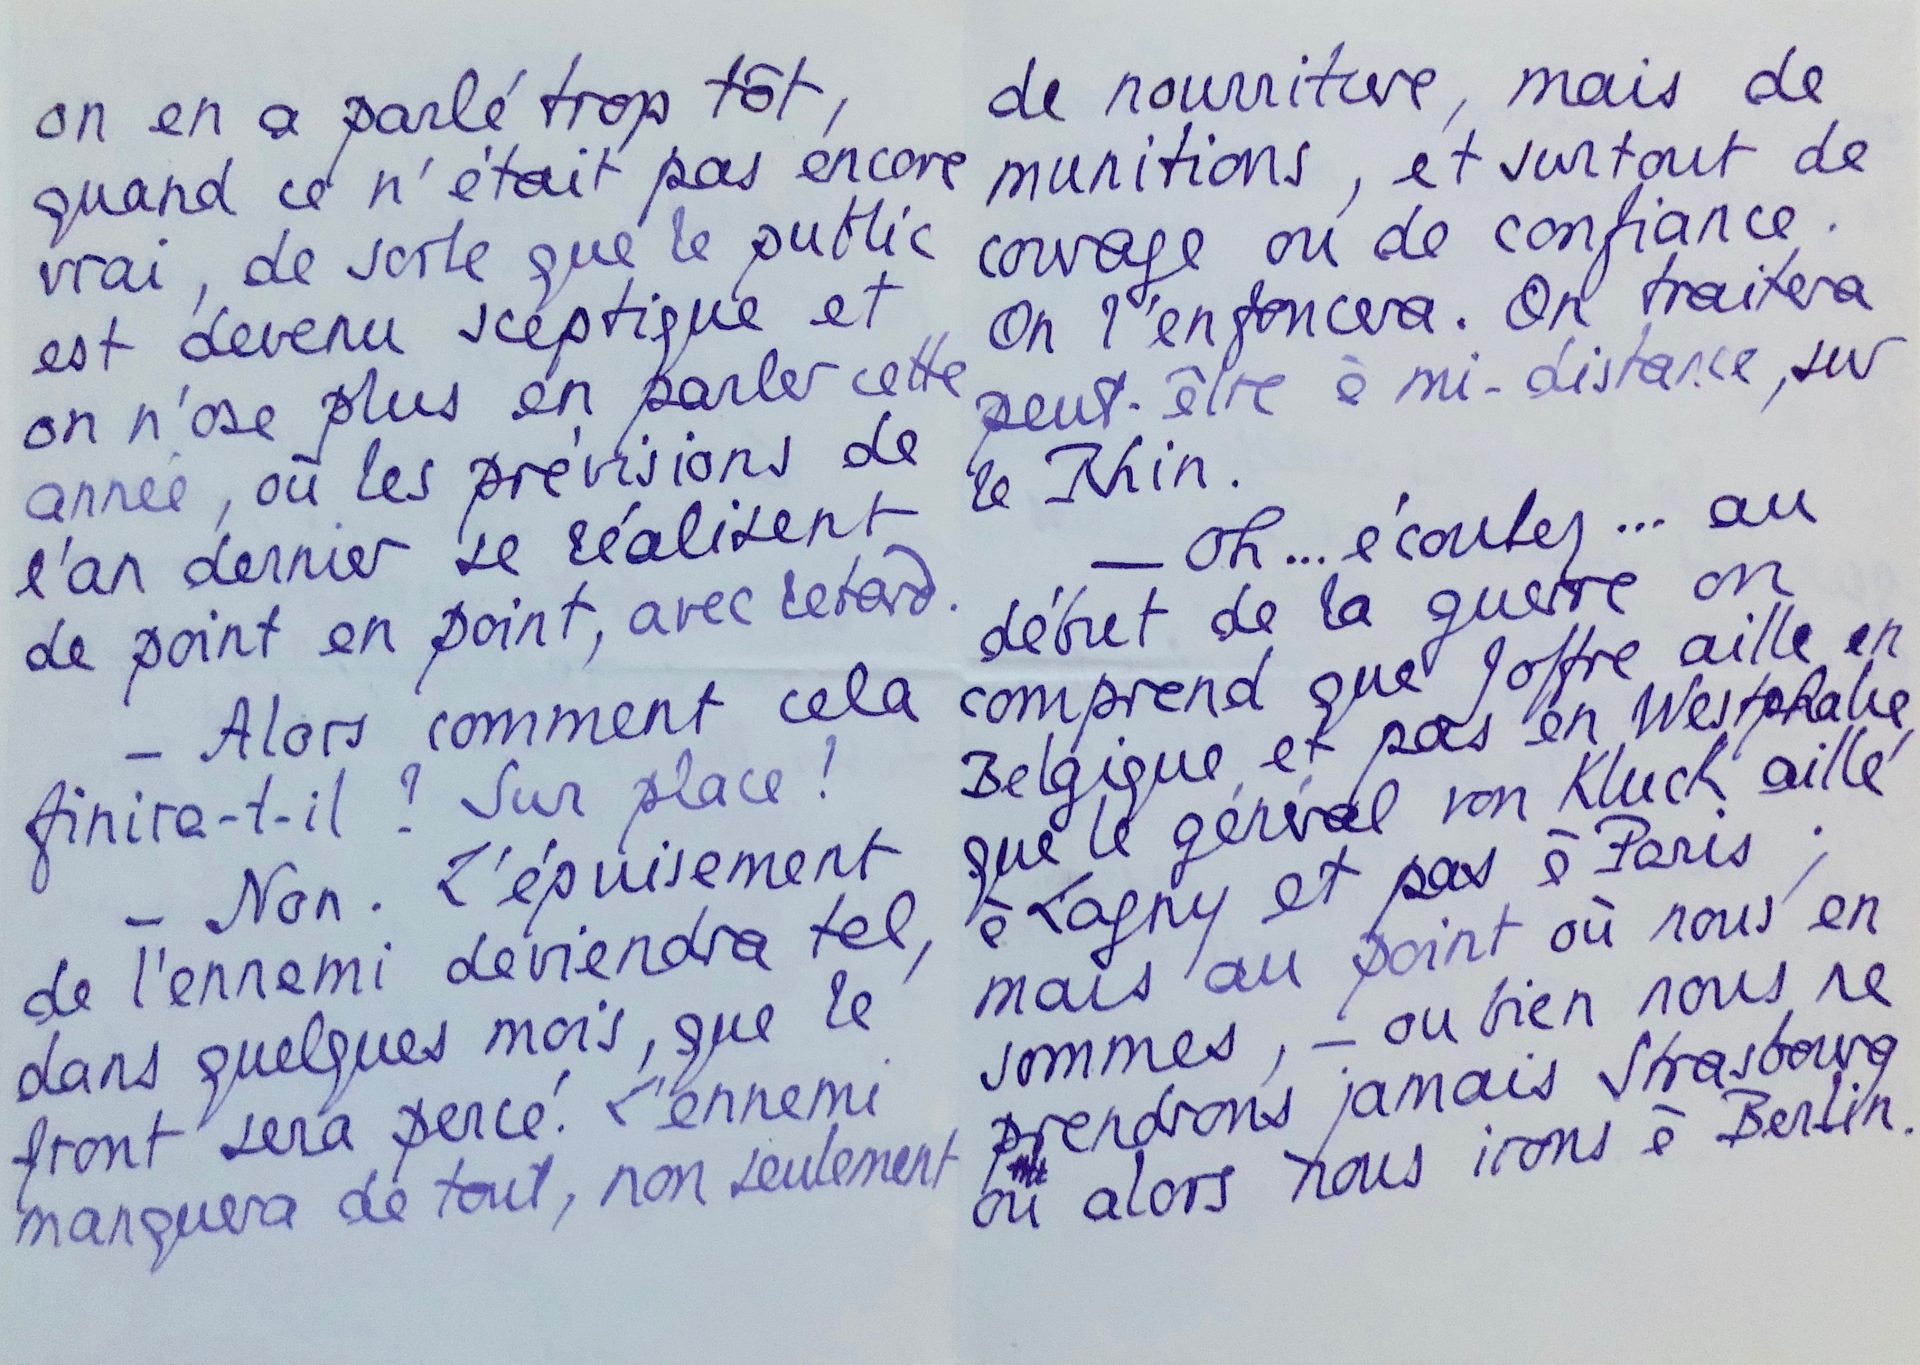 on en a parlé trop tôt,
quand ce n'était pas encore
vrai, de sorte que le public
est devenu sceptique et
on n'ose plus en parler cette
année, où les prévisions de
l'an dernier se réalisent
de point en point, avec retard.
– Alors comment cela
finira-t-il ? Sur place !
– Non. L'épuisement
de l'ennemi deviendra tel,
dans quelques mois, que le
front sera percé. L'ennemi
manquera de tout, non seulement
de nourriture, mais de
munitions, et surtout de
courage ou de confiance.
On l'enfoncera. On traitera
peut-être à mi-distance, sur
le Rhin.
– Oh... écoutez... au
début de la guerre on
comprend que Joffre aille en
Belgique et pas en Westphalie,
que le général von Kluck aille
à Lagny et pas à Paris ;
mais au point où nous en
sommes, – ou bien nous ne
prendrons jamais Strasbourg
ou alors nous irons à Berlin.